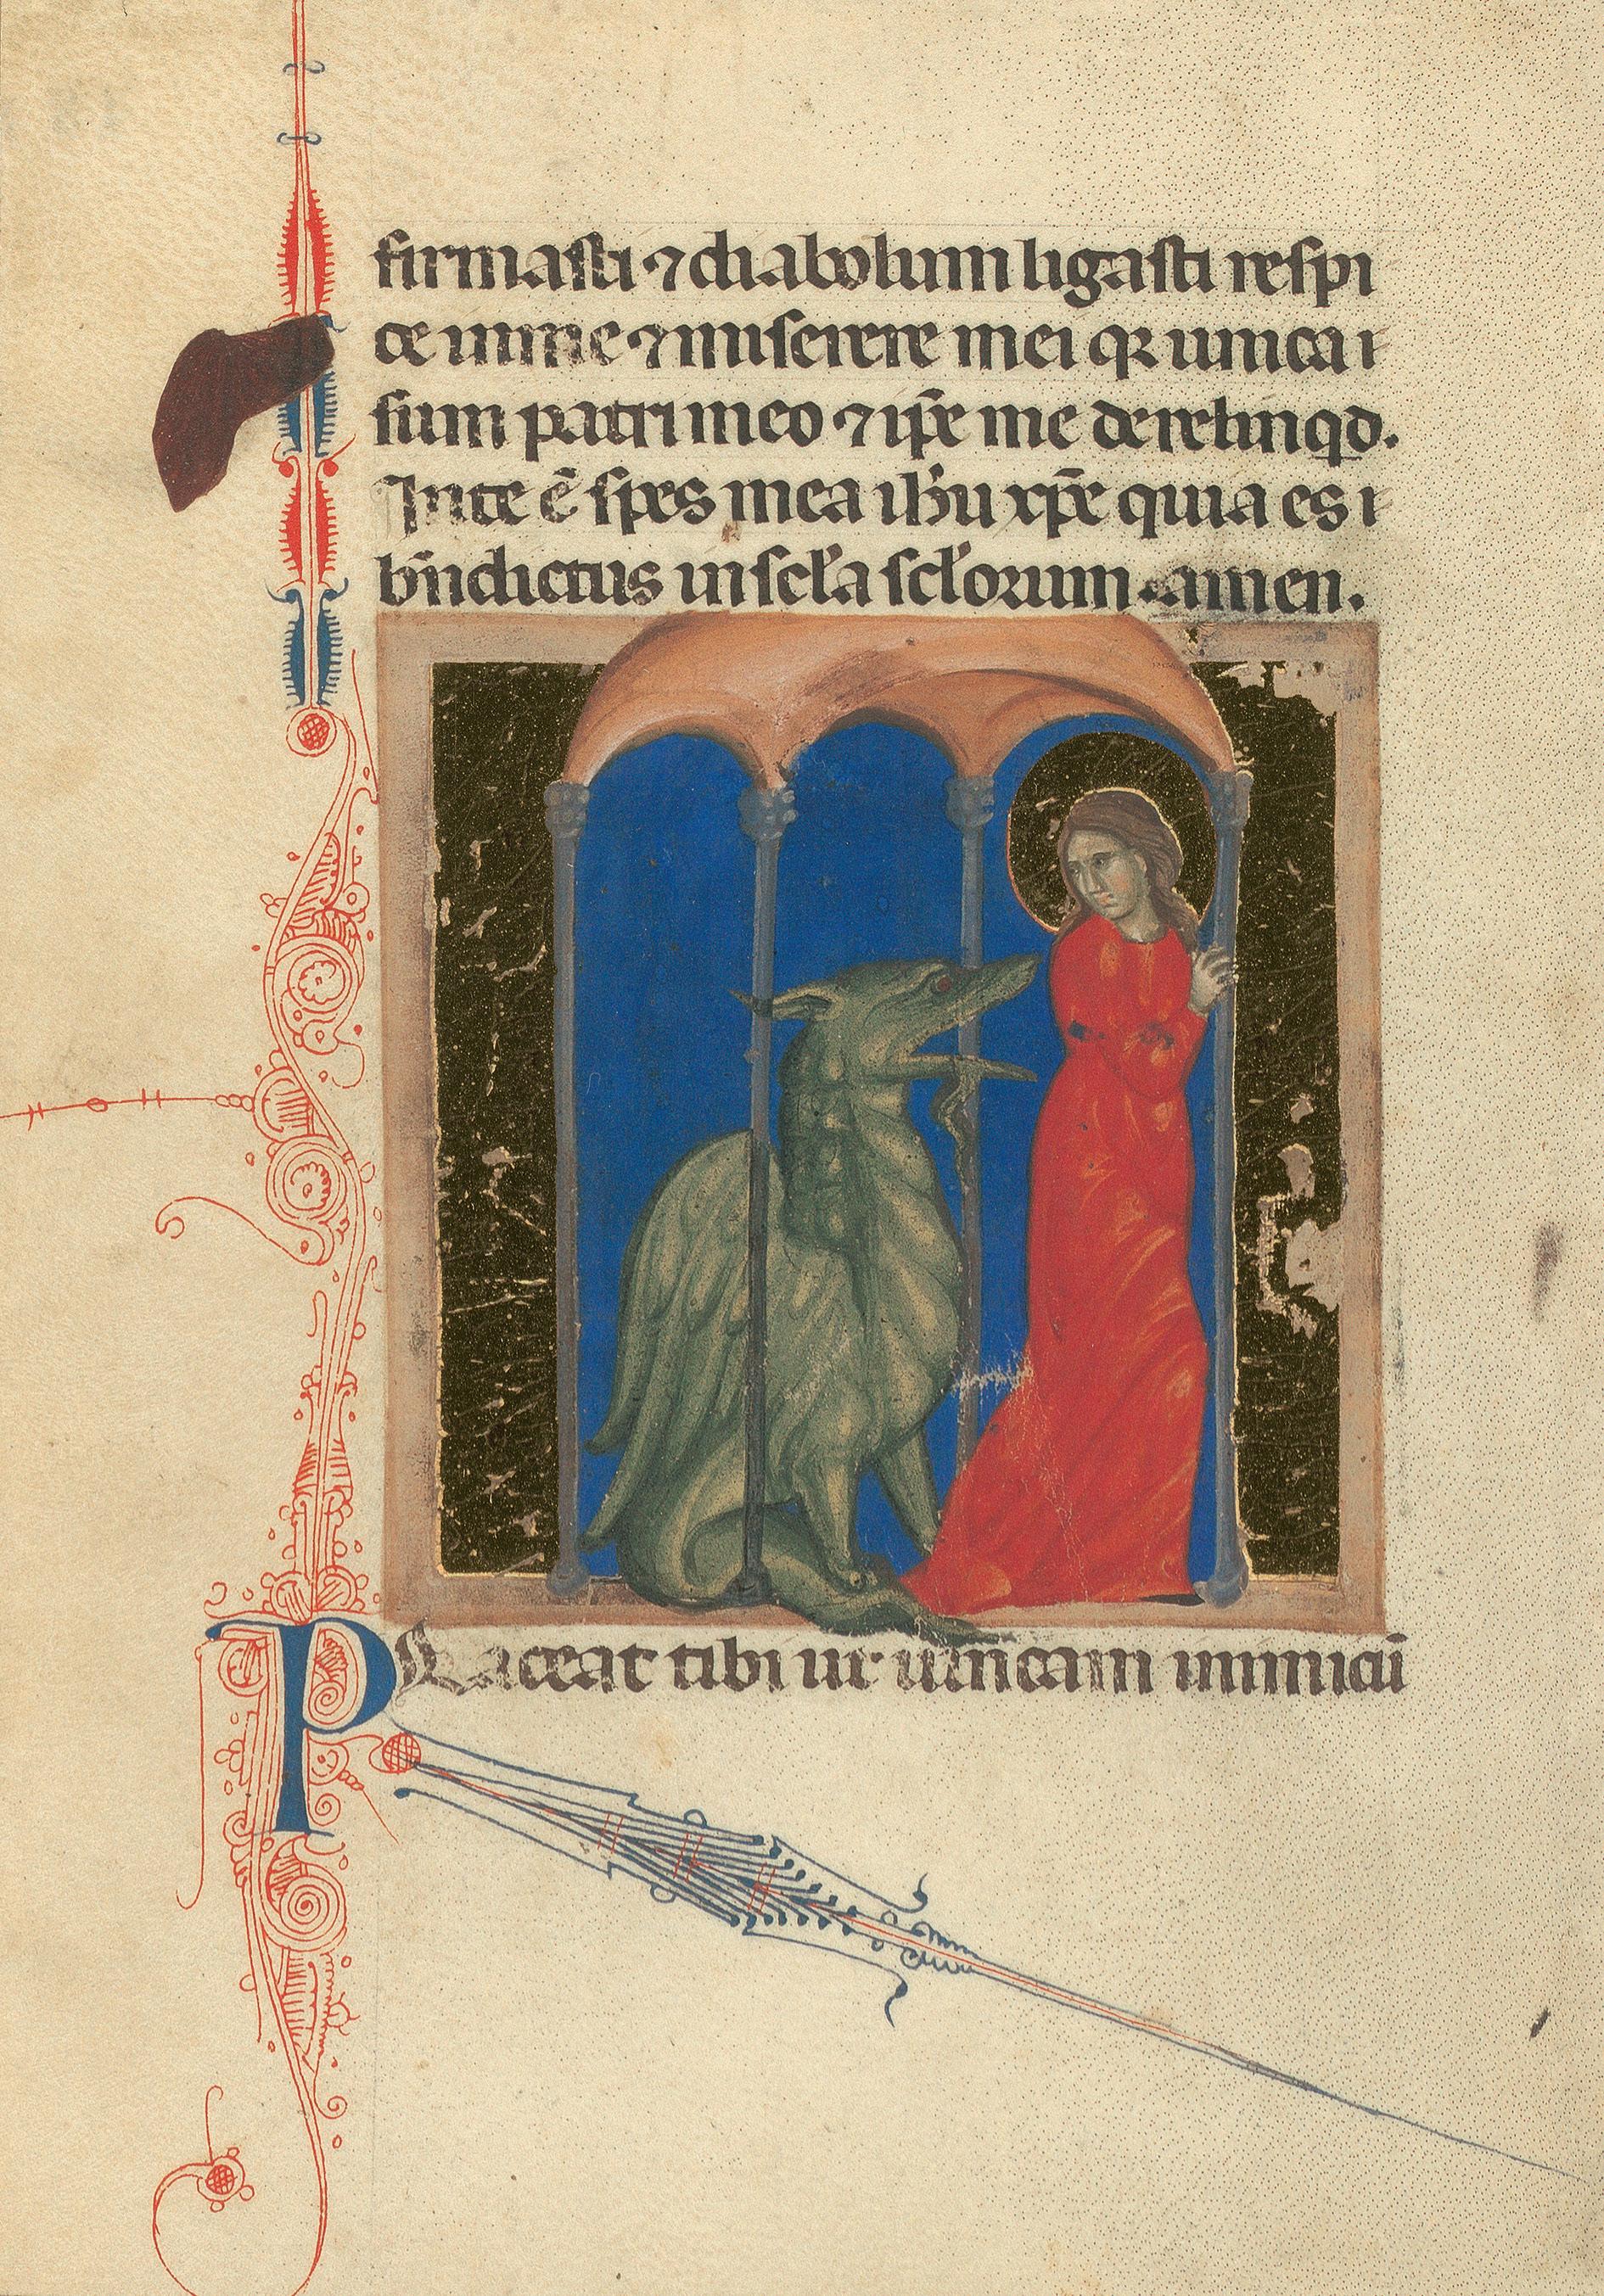 firmasti ⁊ diabolum ligasti respi
ce in me ⁊ miserere mei qꝛ unica
sum patri meo ⁊ ip̄e me dereliнqd.
In te ē spes mea ih̄u xp̄e quia es
bn̄dictus in scl'a scl'orum. amen.
Placeat tibi ut unicam inimicū